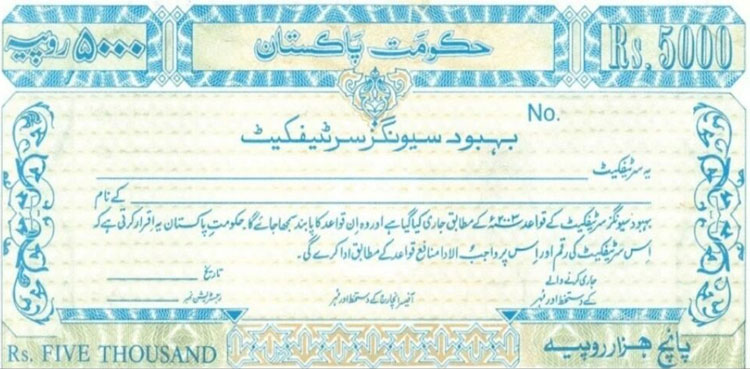 ۵۰۰۰ روپیہ
حکومت پاکستان
Rs. 5000
No.
بہبود سیونگز سرٹیفکیٹ
یہ سرٹیفکیٹ
کے نام
بہبود سیونگز سرٹیفکیٹ کے قواعد ۲۰۰۳ء کے مطابق جاری کیا گیا ہے اور وہ اِن قواعد کا پابند سمجھا جائے گا۔ حکومتِ پاکستان یہ اقرار کرتی ہے کہ
اِس سرٹیفکیٹ کی رقم اور اِس پر واجب الادا منافع قواعد کے مطابق ادا کرے گی۔
جاری کرنے والے
کے دستخط اور مُہر
آفیسر انچارج کے دستخط اور مُہر
تاریخ
رجسٹریشن نمبر
Rs. FIVE THOUSAND
پانچ ہزار روپیہ